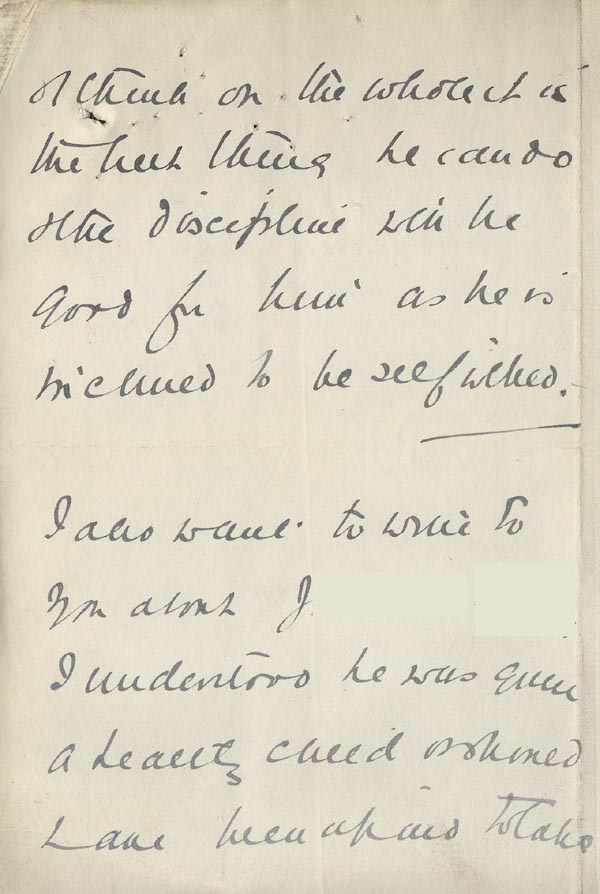 & I think on the whole it is
the best thing he can do
& the discipline will be
good for him as he is
inclined to be selfwilled.
I also want to write to
you about J.
I understood he was quite
a healthy child or should
have been afraid to take